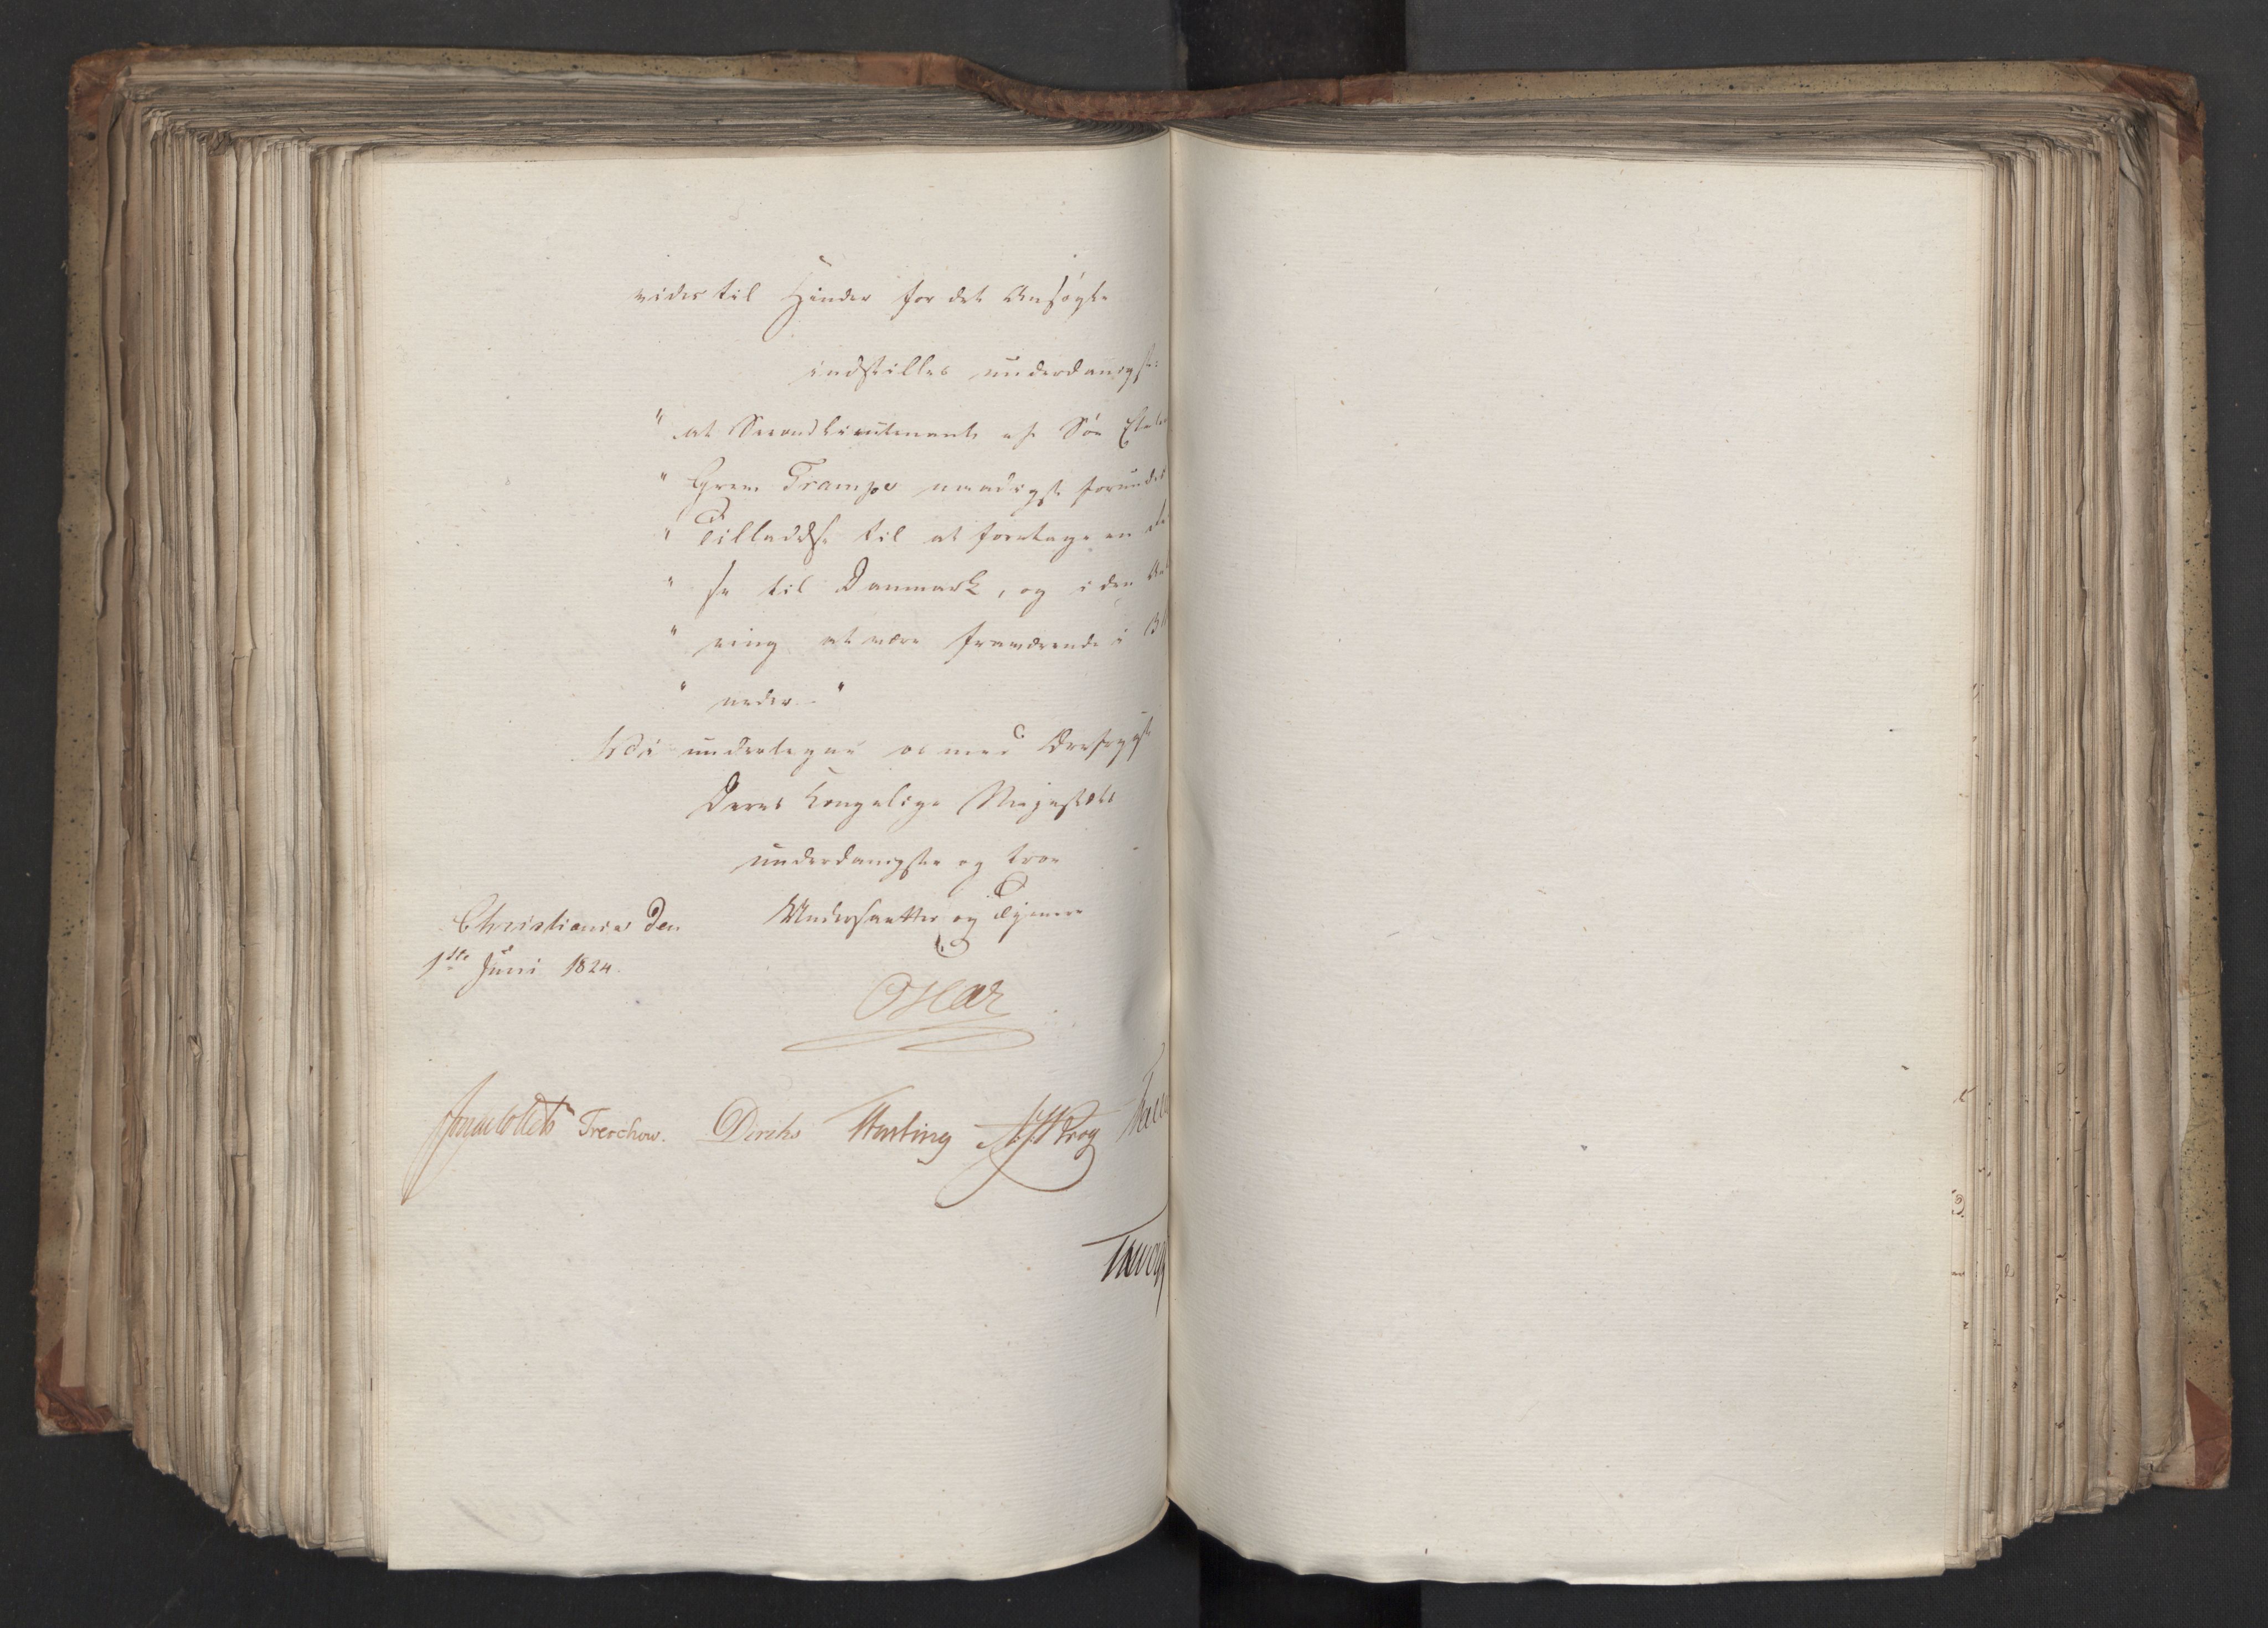 vides til Hinder for det Ansøgte
indstilles underdanigst:
" at Secondlieutenant af Søe Etaten
" Greve Trampe naadigst forundes
" Tilladelse til at foretage en
" se til Danmark, og i den
" ning at være fraværende i
" neder. "
Vdi undertegne os med Ærefrygt
Deres Kongelige Majestæts
underdanigste og troe
Undersaatter og Tjenere
Christiania den
1ste Juni 1824.
Oscar
Treschow. Diriks Fasting